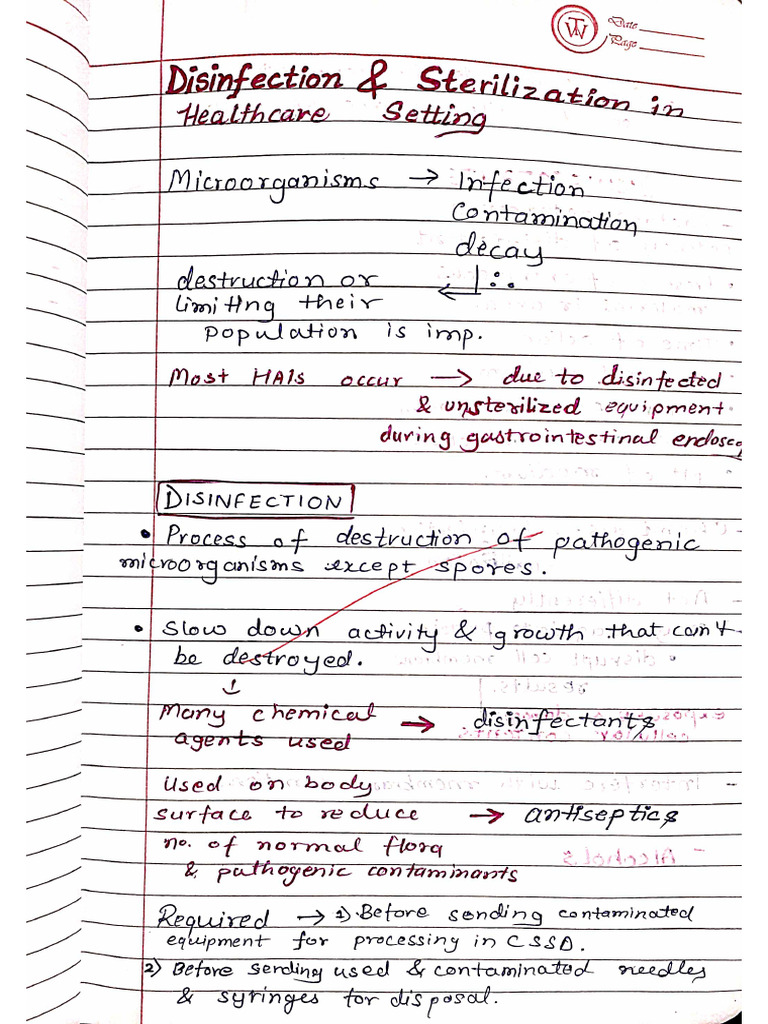 TW
Date
Page
Disinfection & Sterilization in
Healthcare Setting
Microorganisms → Infection
Contamination
decay
destruction or ← ∴
limiting their
population is imp.
Most HAIs occur → due to disinfected
& unsterilized equipment
during gastrointestinal endosco
DISINFECTION
• Process of destruction of pathogenic
microorganisms except spores.
• Slow down activity & growth that can't
be destroyed.
↓
Many chemical → disinfectants
agents used
Used on body
surface to reduce → antiseptics
no. of normal flora
& pathogenic contaminants
Required → 1) Before sending contaminated
equipment for processing in CSSD.
2) Before sending used & contaminated needles
& syringes for disposal.